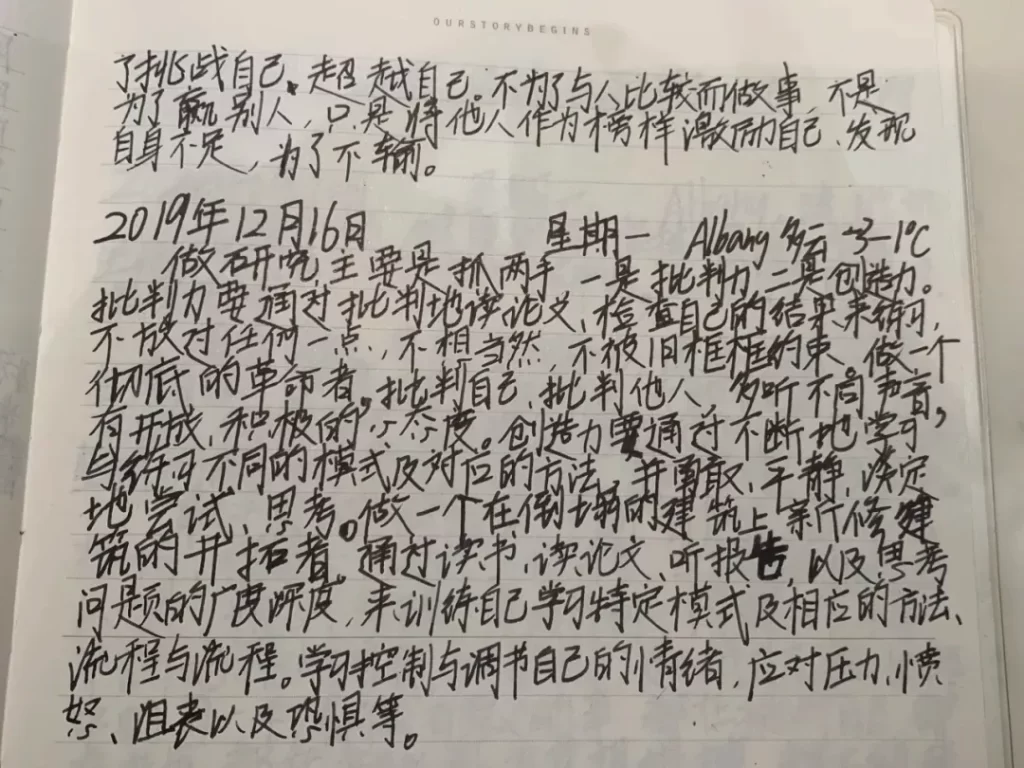 OURSTORYBEGINS
了挑战自己、超越自己。不为了与人比较而做事，不是
为了赢别人，只是将他人作为榜样激励自己、发现
自身不足，为了不输。
2019年12月16日 星期一 Albany 多云 -3–1℃
做研究主要是抓两手 一是批判力 二是创造力。
批判力要通过批判地读论文、检查自己的结果来练习，
不放过任何一点，不想当然，不被旧框框约束。做一个
彻底的革命者。批判自己，批判他人，多听不同声音，
有开放、积极的心态度。创造力要通过不断地学习，
与练习不同的模式及对应的方法，并勇敢、平静、淡定
地尝试、思考。做一个在倒塌的建筑上新修建
筑的开拓者。通过读书、读论文、听报告，以及思考
问题的广度深度，来训练自己学习特定模式及相应的方法、
流程与流程。学习控制与调节自己的情绪，应对压力、愤
怒、沮丧以及恐惧等。